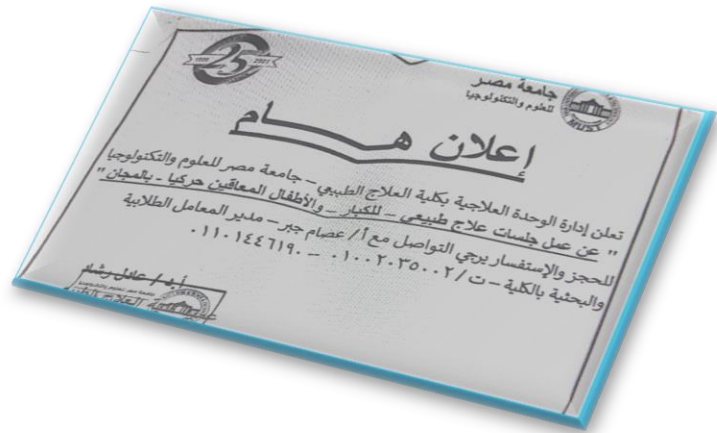 25
1996
2021
جامعة مصر
للعلوم والتكنولوجيا
MUST
إعلان هــــام
تعلن إدارة الوحدة العلاجية بكلية العلاج الطبيعي – جامعة مصر للعلوم والتكنولوجيا
" عن عمل جلسات علاج طبيعى – للكبار – والأطفال المعاقين حركيا - بالمجان "
للحجز والإستفسار يرجي التواصل مع أ/ عصام جبر – مدير المعامل الطلابية
والبحثية بالكلية – ت / ٠١٠٠٢٠٣٥٠٠٢ – ٠١١٠١٤٤٦١٩٠
أ.د/ عادل رشاد